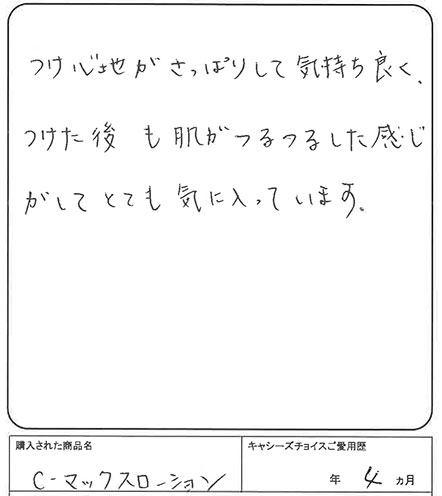 つけ心地がさっぱりして気持ち良く、
つけた後 も肌がつるつるした感じ
がしてとても気に入っています。
購入された商品名
キャシーズチョイスご愛用歴
C-マックスローション
年 4 ヵ月